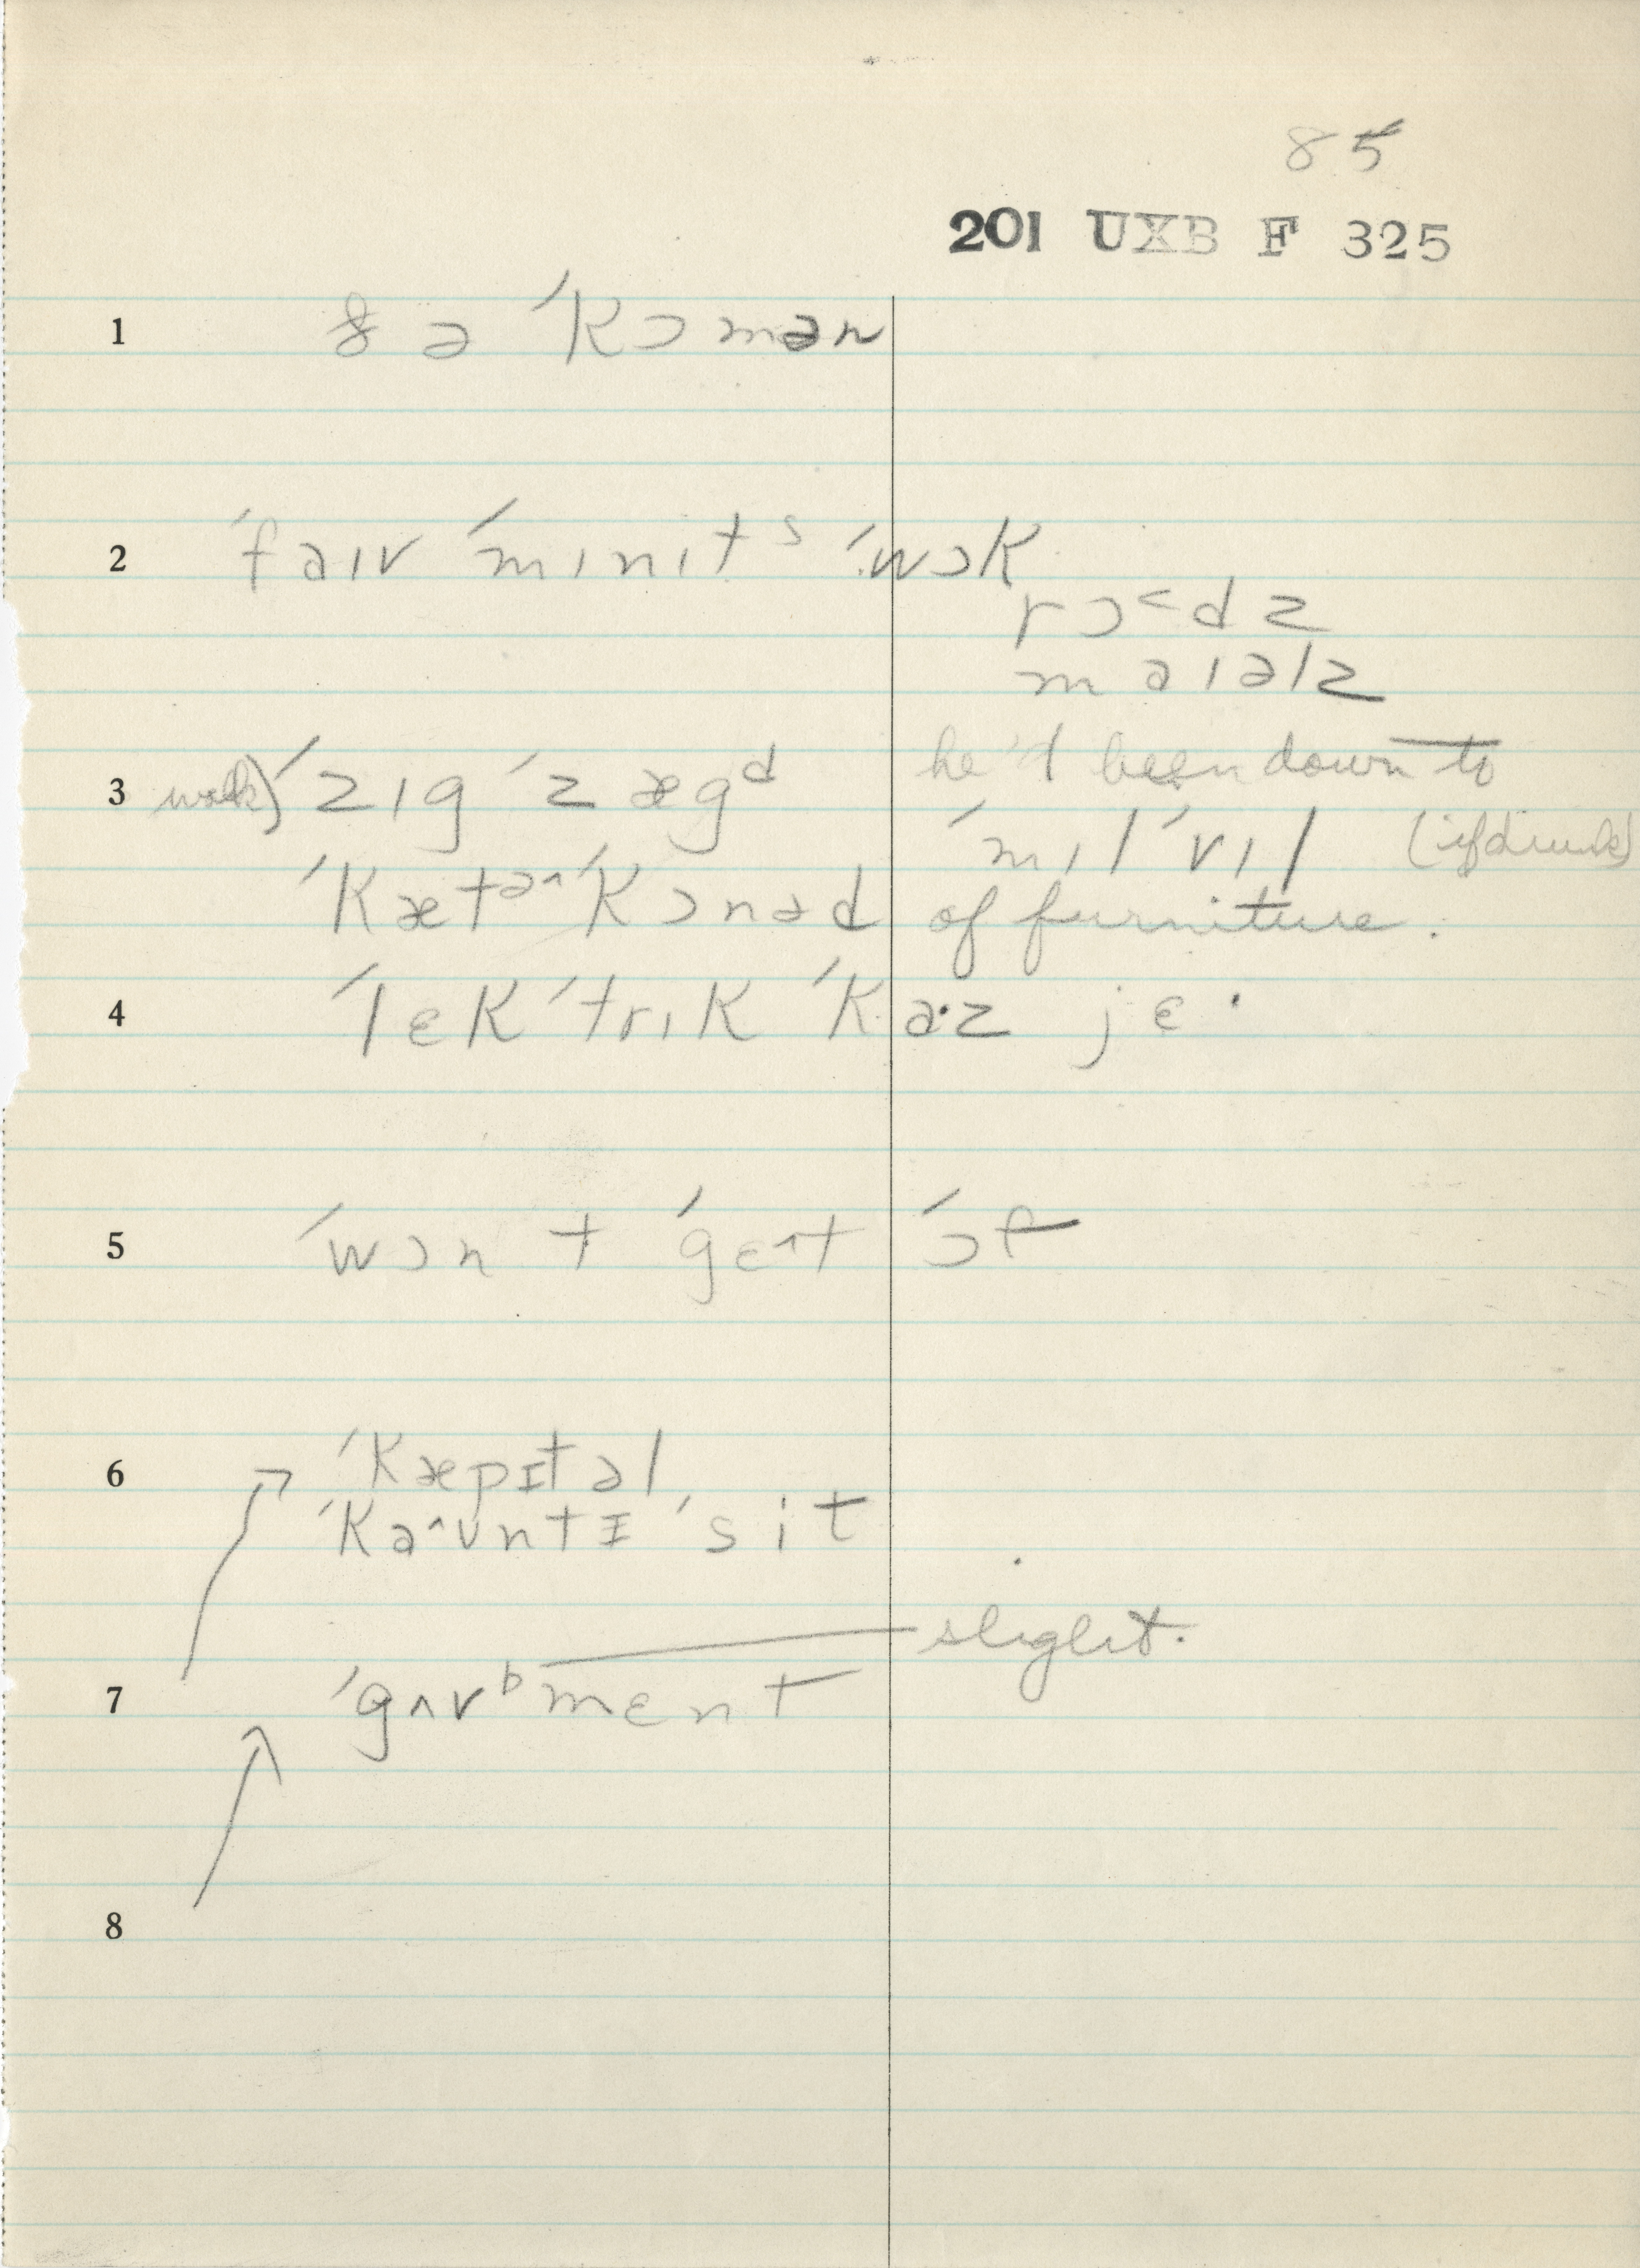 85
201 UXB F 325
1 ðə ˈkɔmən
2 ˈfaɪv ˈmɪnɪtˢ ˈwɔk
rɔ˂dz
maɪəlz
3 walk) ˈzɪg ˈzægᵈ he'd been down to
ˈmɪlˈvɪl (if drunk)
ˈkætəˆˈkɔnəd of furniture.
4 ˈlɛkˈtrɪk ˈka·z jɛ·
5 ˈwɔnt ˈgɛˆt ˈɔf
6 ˈkæpɪtəl
ˈkaˆʊntɪ ˈsit
slight.
7 ˈgʌvᵇmɛnt
8